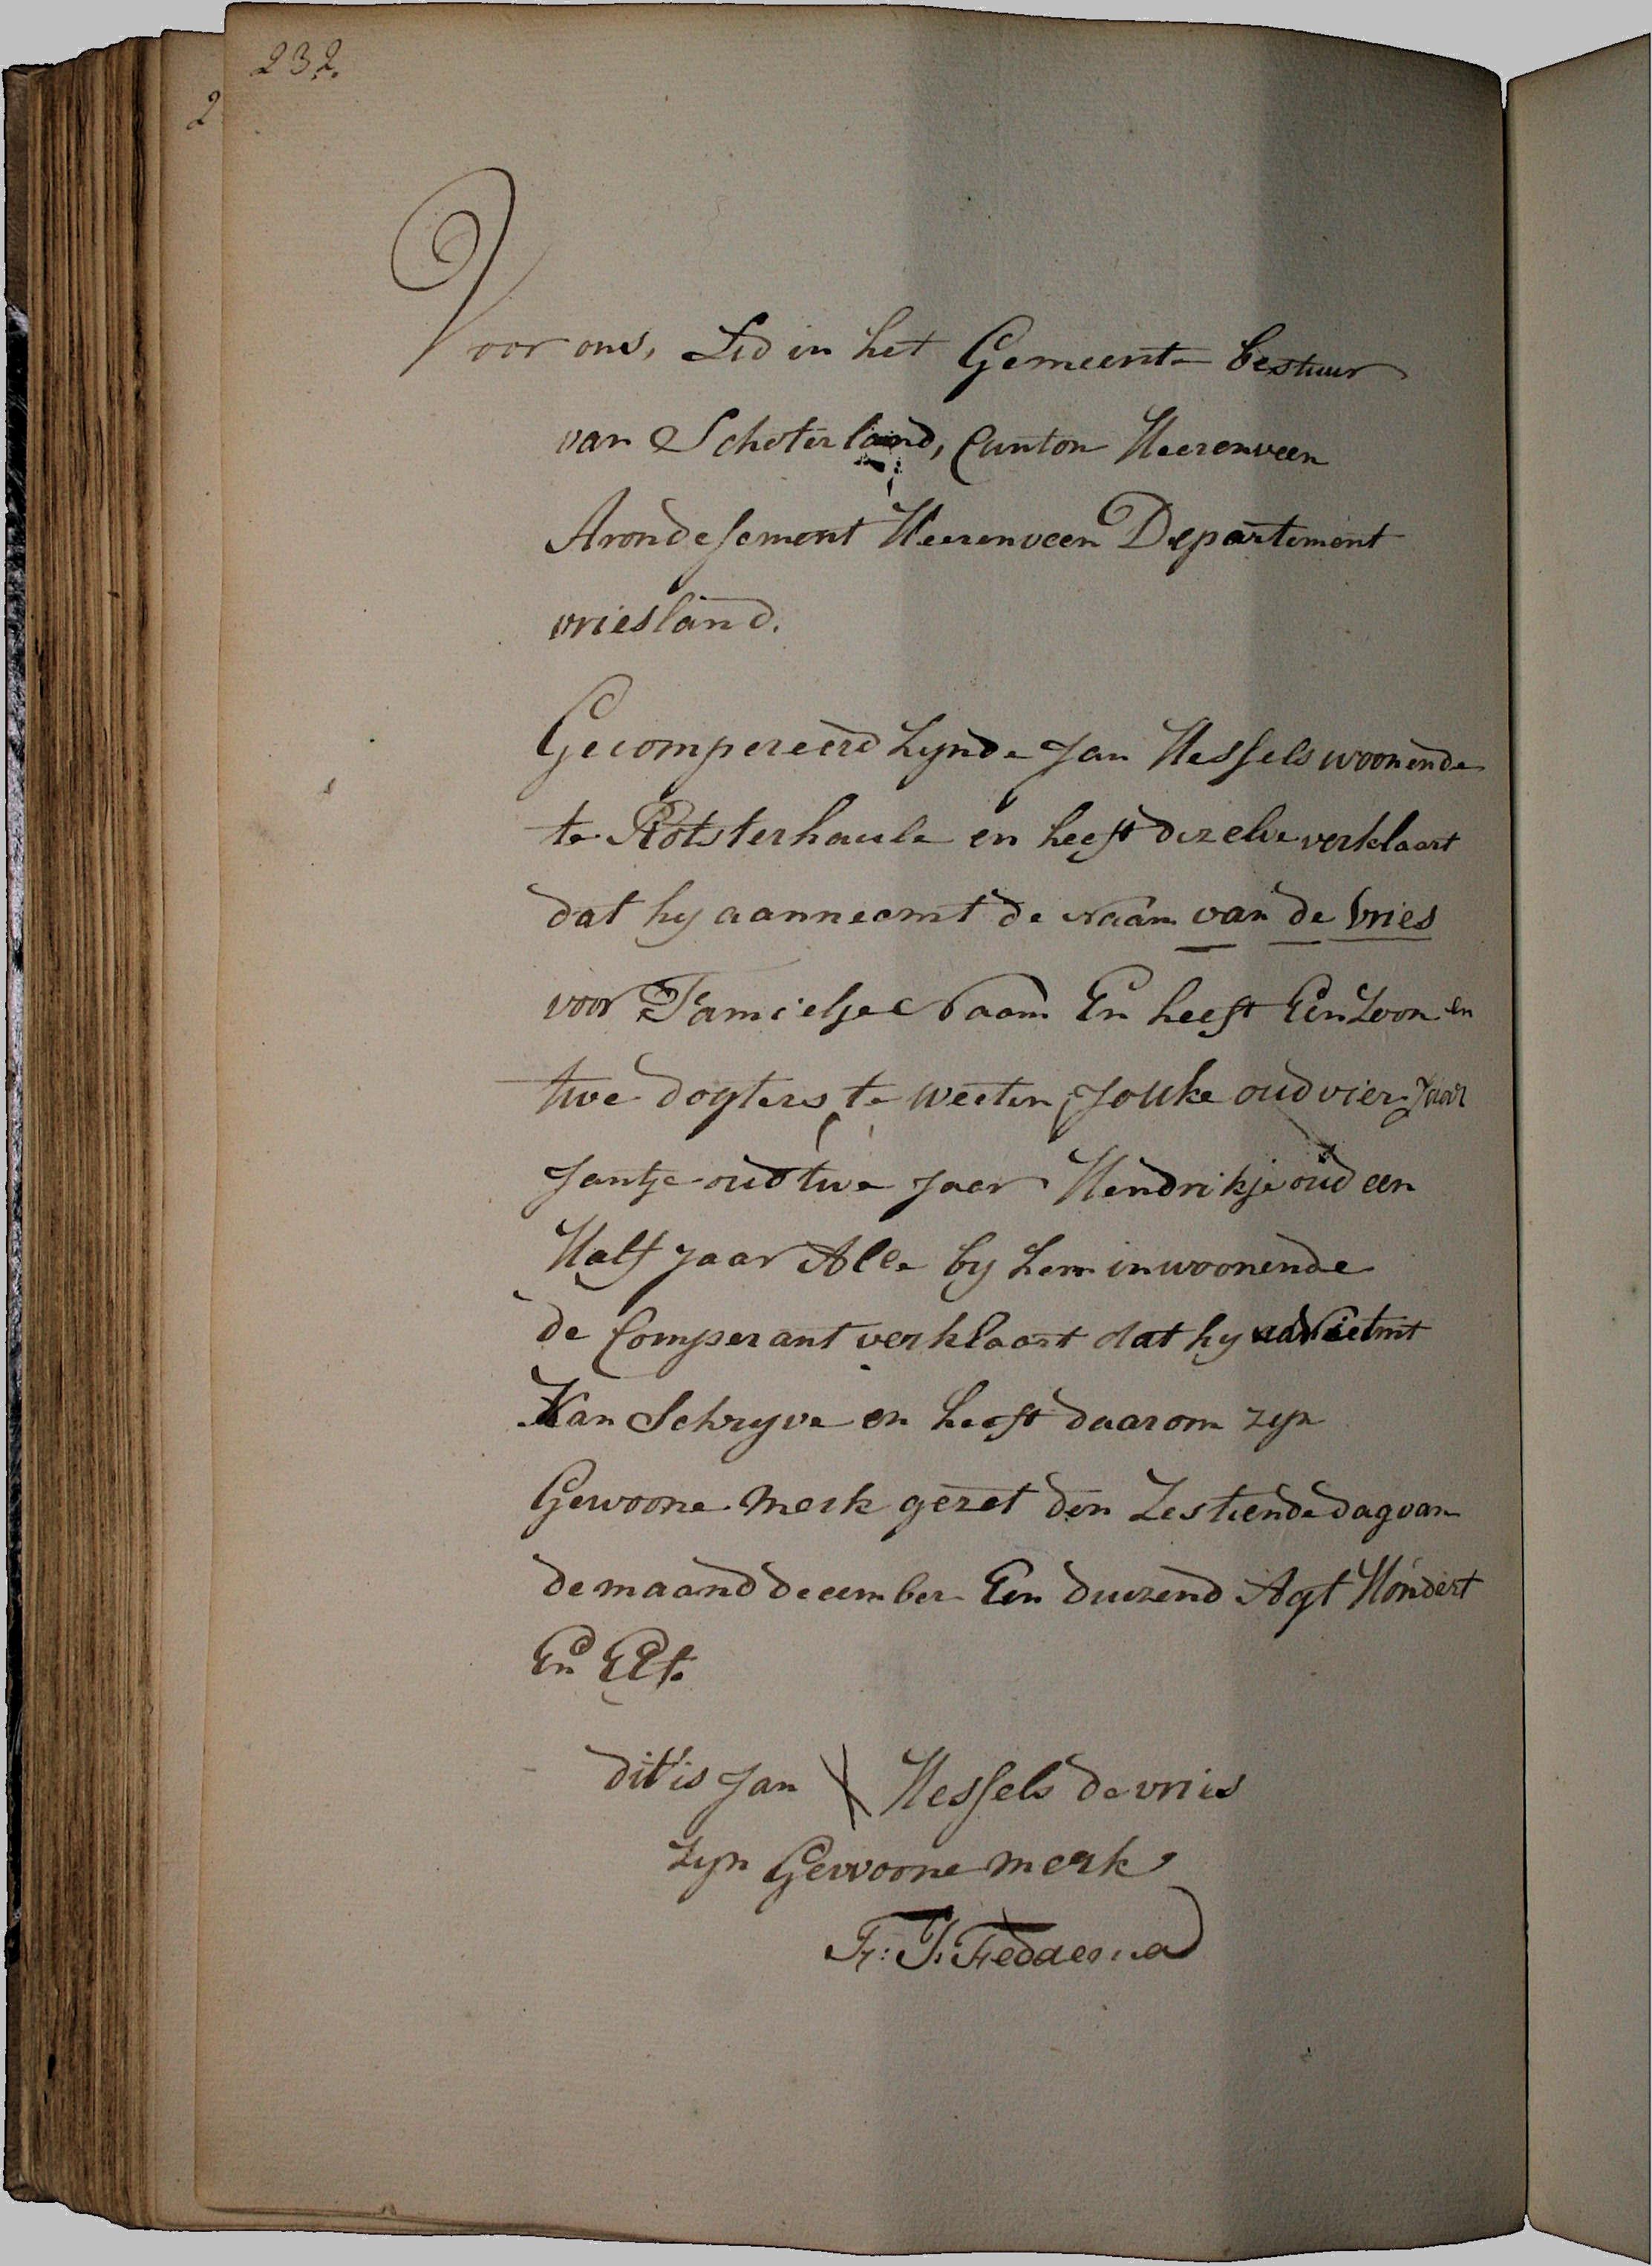 232.
2
Voor ons, Lid in het Gemeente bestuur
van Schoterland, Canton Heerenveen
Arondesement Heerenveen Departement
vriesland.
Gecompereerd Zynde Jan Hessels woonende
te Rotsterhaule en heeft dezelve verklaart
dat hy aanneemt de Naam van de Vries
voor Famielje Naam En heeft Een Zoon en
twe dogters te weeten, Jouke oud vier Jaar
Jantje oud twe Jaar Hendrikje oud een
Half Jaar Alle by hem inwoonende
de Comperant verklaart dat hy niet
Kan Schryve en heeft daarom zyn
Gewoone Merk gezet den Zestiende dag van
de maand december Een duizend Agt Hondert
En Elf.
dit is Jan X Hessels de vries
Zyn Gewoone merk
Fr: J: Feddema